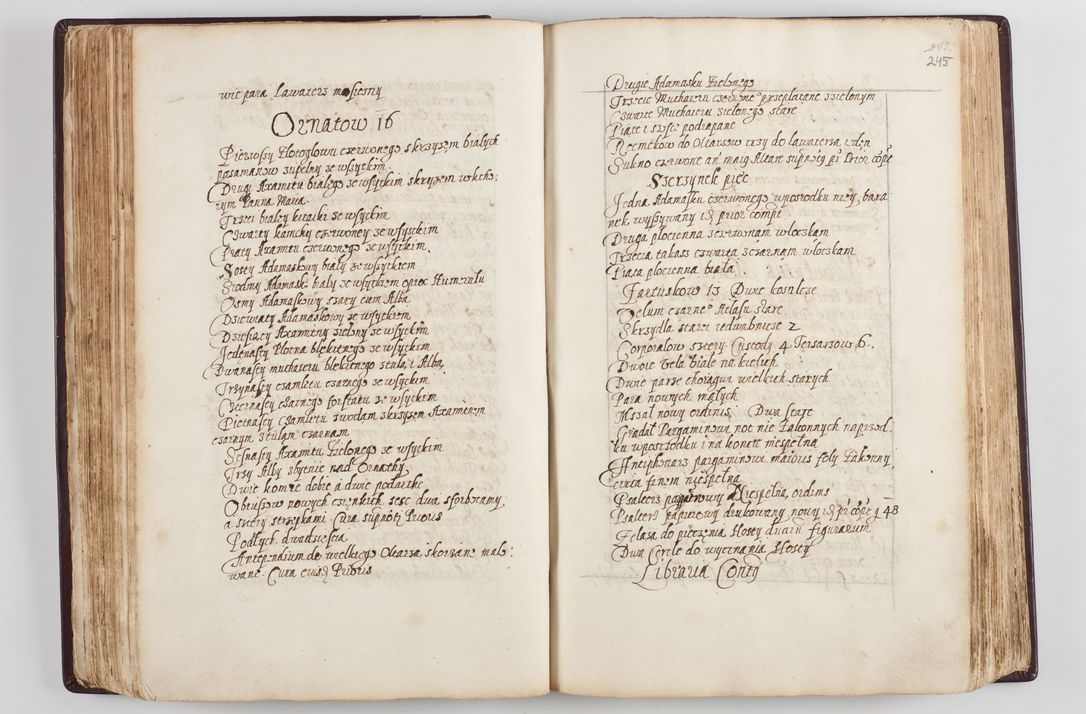 wie para Lawaters mosiezny
Ornatow 16
Pierwszy Złotogłowu czerwonego skrzyzem białych
pasamanow zupełny ze wszytkim
Drugi Axamitu białego ze wszytkim skrzyzem wktho:
rym Panna Maria.
Trzeci białey kitaiki ze wszytkim
Czwarty kamchy czerwoney ze wszytkim
Piąty Axamitu czerwonego ze wszytkim
Szosty Adamaskowy biały ze wszytkiem
Siodmy Adamasku biały ze wszytkiem oprocz Humerału
Osmy Adamaskowy szary cum Alba
Dziewiąty Adamaskowy ze wszytkiem
Dziesiący Axamitny zielony ze wszytkim
Jedenasty Płotna blękitnego ze wszytkim
Dwanasty muchaieru blękitnego stula, i Alba,
Trzynasty czamletu czarnego ze wszytkim
Czternasty czarnego forsztatu ze wszytkim
Pietnasty Czamletu zwodam skrzyzem Axamitem
czarnym stulam czarnam
Szesnasty Axamitu Zielonego ze wszytkim
Trzy Alby zbytnie nad Ornathy,
Dwie komze dobre a dwie podarthe
Obrussow nowych czienkich szesc dwa sforbotamy
a sztery strzepkami Cura
Podłych dwadziescia
Antependium de wielkiego Ołtarza skorzane malo:
wane Cura
245
Drugie Adamasku Zielonego
Trzecie Muchaieru czerwone° przeplatane zzielonym
Czwarte Muchaieru zielonego stare
Piąte i szoste podrapane
Recznikow do Ołtarzow trzy do lawaterza ieden
Sukno czerwone
Skrzynek pięc
Jedna Adamasku czerwonego wposrodku niey, bara
nek wyszywany
Druga płocienna zczerwonam włoczkam
Trzecia takasz czwarta zczarnam włoczkam
Piąta płocienna biała
Fartuskow 13 Dwie kosnlcze
Velum czarne° Atlasu stare
Skrzydla stare iedwabnicze 2
Corporałow sztery Custody 4 Tersarzow 6.
Dwoie Vela białe na kielich
Dwie parze choragwi wielkich starych
Para nowych małych
Mszał nowy ordinis: Dwa stare
Gradał Pargaminowi not nie Zakonnych naprzod
ku wposrodku i na koncu niespełna
Antyphonarz pargaminowi maioris foly Zakonny
circa finem niespełna
Psałterz papierowy Niespełna, ordinis
Psałterz papierowy drukowany nowy 48
Zelaza do pieczenia Hosty duaru figurarum
Dwa Cercle do wycinania Hosty
Libraria Contg